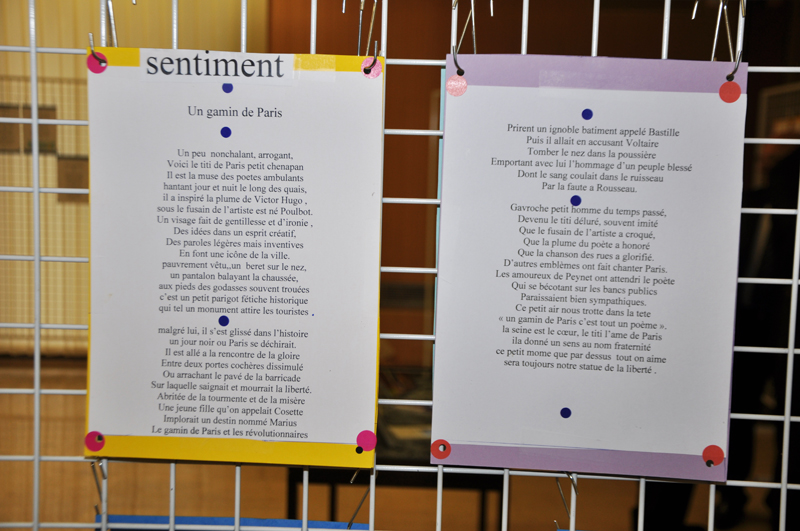 sentiment
Un gamin de Paris
Un peu nonchalant, arrogant,
Voici le titi de Paris petit chenapan
Il est la muse des poetes ambulants
hantant jour et nuit le long des quais,
il a inspiré la plume de Victor Hugo ,
sous le fusain de l'artiste est né Poulbot.
Un visage fait de gentillesse et d'ironie ,
Des idées dans un esprit créatif,
Des paroles légères mais inventives
En font une icône de la ville.
pauvrement vêtu,,un beret sur le nez,
un pantalon balayant la chaussée,
aux pieds des godasses souvent trouées
c'est un petit parigot fétiche historique
qui tel un monument attire les touristes ,
malgré lui, il s'est glissé dans l'histoire
un jour noir ou Paris se déchirait.
Il est allé a la rencontre de la gloire
Entre deux portes cochères dissimulé
Ou arrachant le pavé de la barricade
Sur laquelle saignait et mourrait la liberté.
Abritée de la tourmente et de la misère
Une jeune fille qu'on appelait Cosette
Implorait un destin nommé Marius
Le gamin de Paris et les révolutionnaires
Prirent un ignoble batiment appelé Bastille
Puis il allait en accusant Voltaire
Tomber le nez dans la poussière
Emportant avec lui l'hommage d'un peuple blessé
Dont le sang coulait dans le ruisseau
Par la faute a Rousseau.
Gavroche petit homme du temps passé,
Devenu le titi déluré, souvent imité
Que le fusain de l'artiste a croqué,
Que la plume du poète a honoré
Que la chanson des rues a glorifié.
D'autres emblèmes ont fait chanter Paris.
Les amoureux de Peynet ont attendri le poète
Qui se bécotant sur les bancs publics
Paraissaient bien sympathiques.
Ce petit air nous trotte dans la tete
« un gamin de Paris c'est tout un poème ».
la seine est le cœur, le titi l'ame de Paris
ila donné un sens au nom fraternité
ce petit mome que par dessus tout on aime
sera toujours notre statue de la liberté .